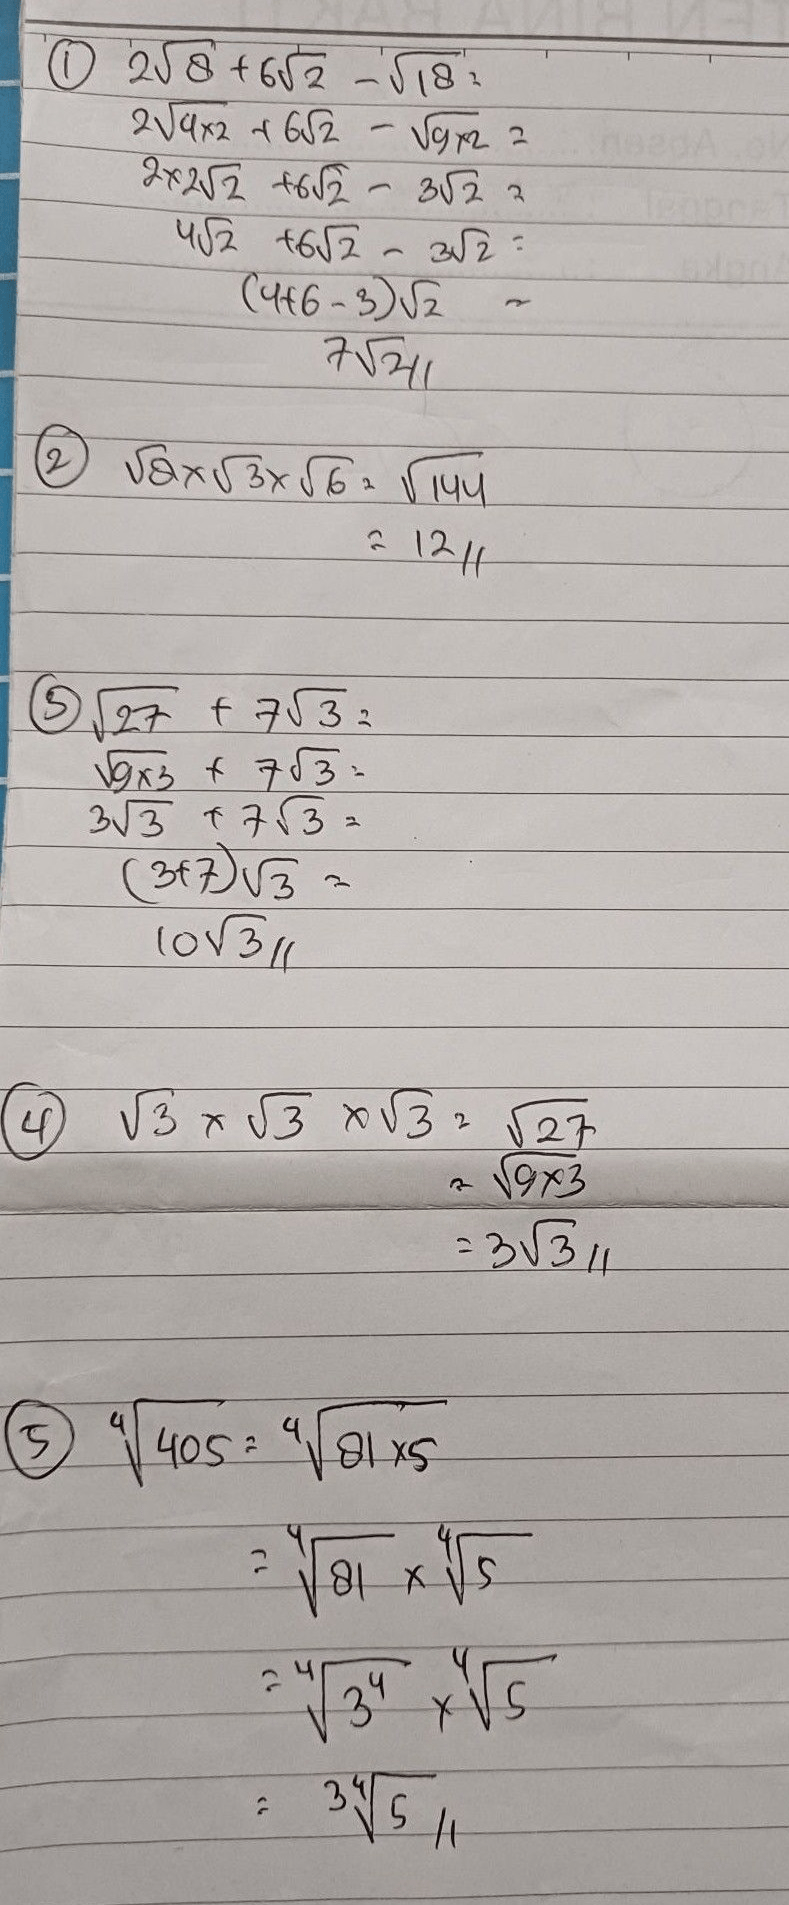 ① 2√8 + 6√2 - √18 =
2√4×2 + 6√2 - √9×2 =
2×2√2 + 6√2 - 3√2 =
4√2 + 6√2 - 3√2 =
(4+6-3)√2 =
7√2 //
② √8 × √3 × √6 = √144
= 12 //
③ √27 + 7√3 =
√9×3 + 7√3 =
3√3 + 7√3 =
(3+7)√3 =
10√3 //
④ √3 × √3 × √3 = √27
= √9×3
= 3√3 //
⑤ ⁴√405 = ⁴√81×5
= ⁴√81 × ⁴√5
= ⁴√3⁴ × ⁴√5
= 3⁴√5 //